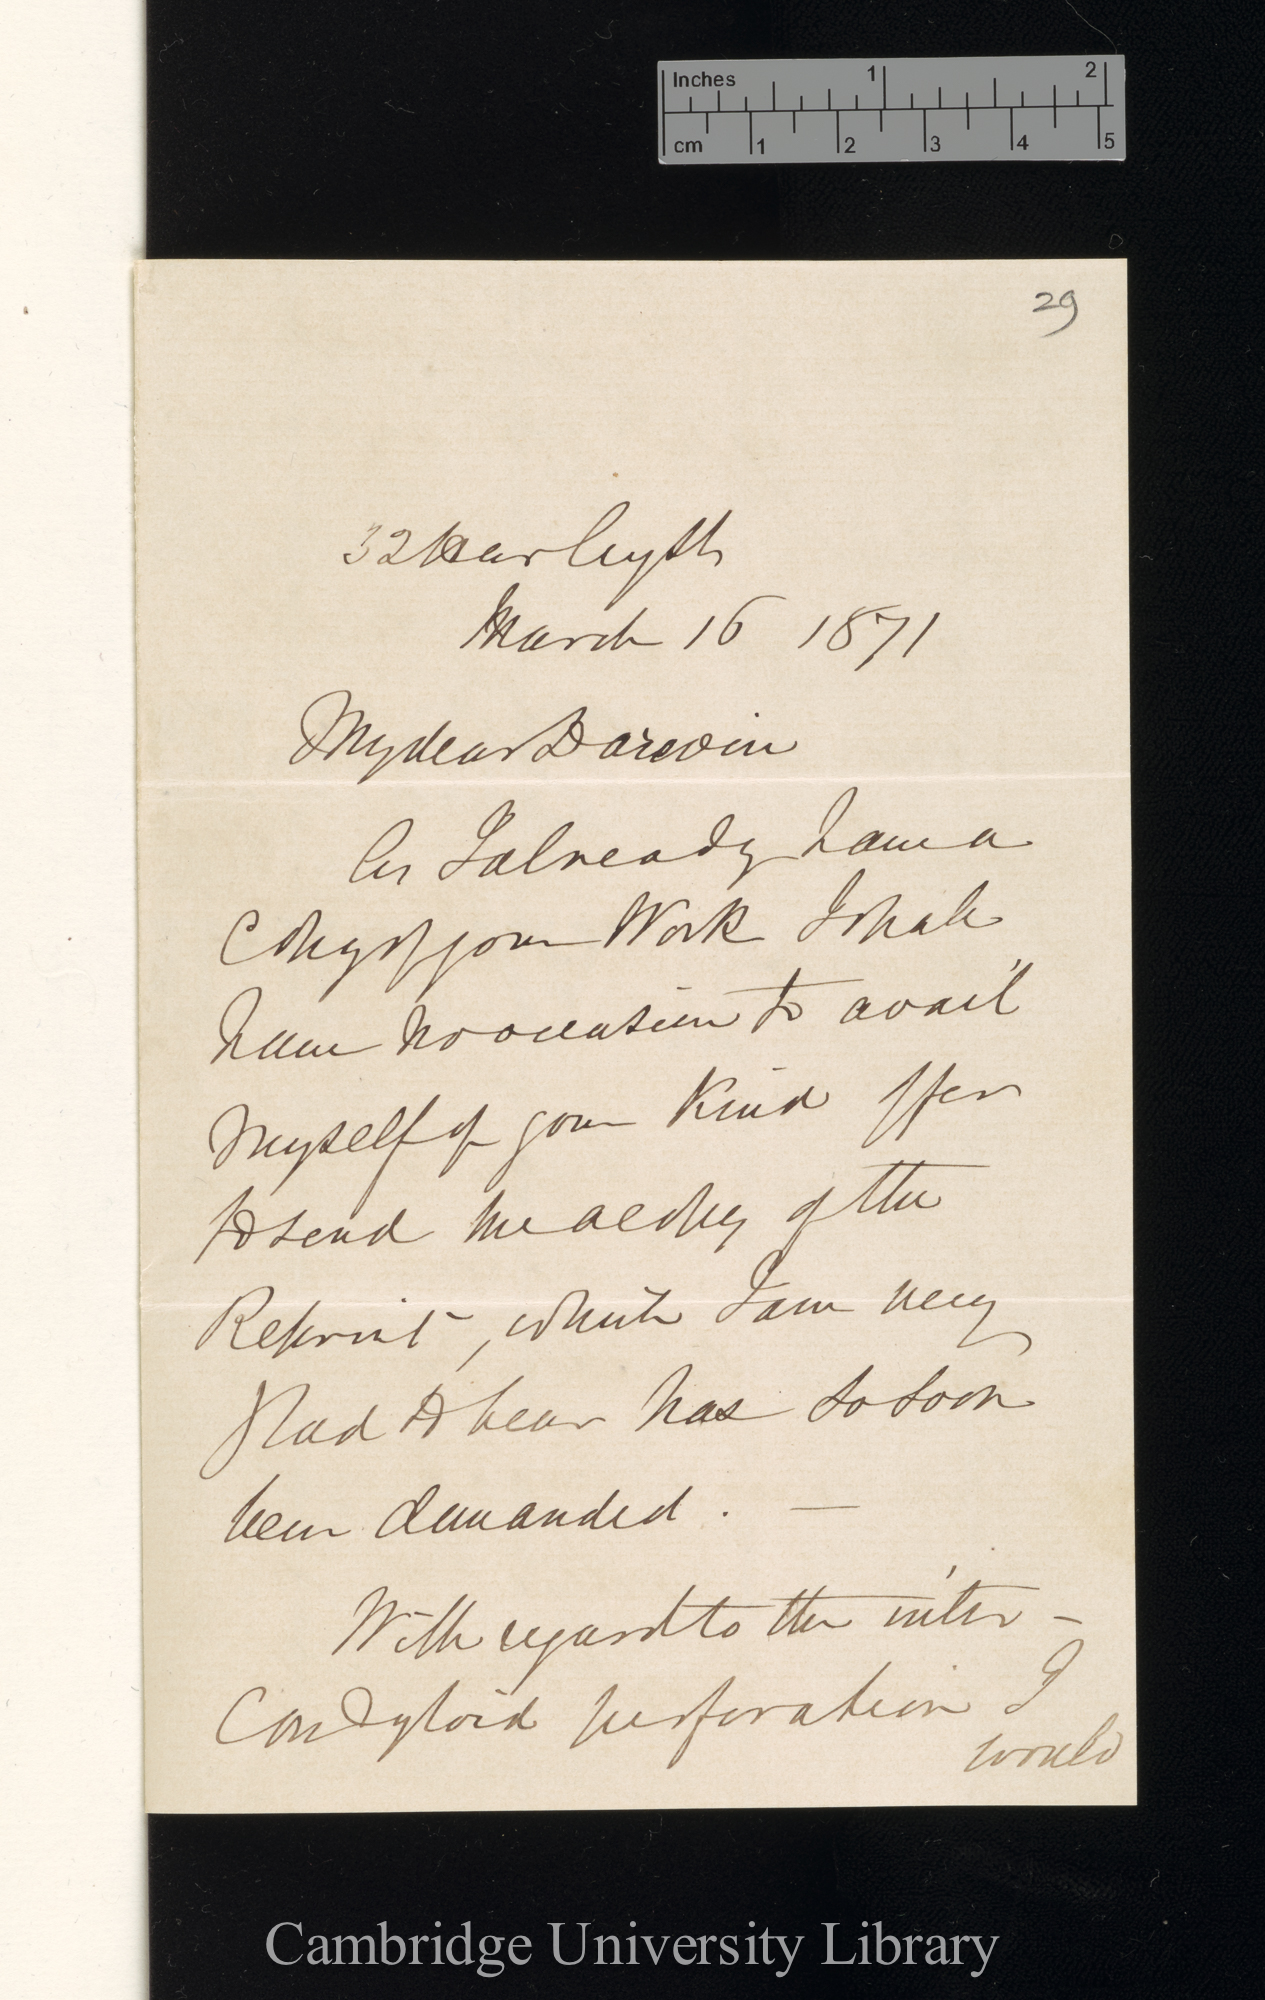 Inches 1 2
cm 1 2 3 4 5
29
32 Harley St
March 16 1871
My dear Darwin
As I already have a
Copy of your Work I shall
have no occasion to avail
myself of your kind offer
to send me a copy of the
Reprint, which I am very
glad to hear has so soon
been demanded. —
With regard to the inter-
Condyloid perforation I
would
Cambridge University Library